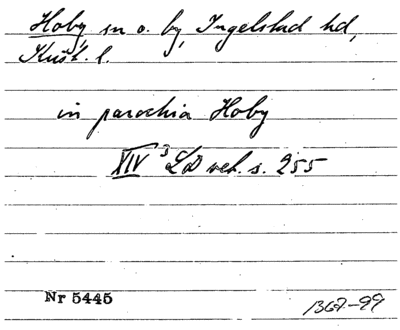 Hoby sn o. by, Ingelstad hd,
Krist. l.
in parochia Hoby
XIV 3 LD reh. s. 255
Nr 5445
1367-99